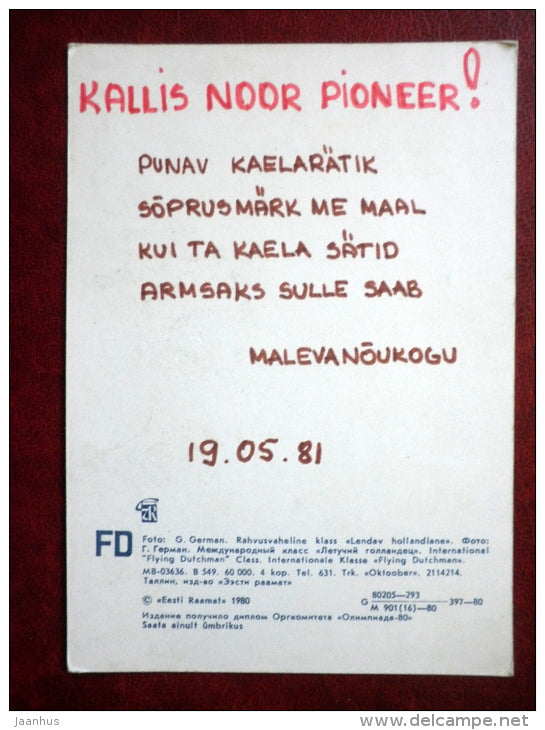 KALLIS NOOR PIONEER!
PUNAV KAELARÄTIK
SÕPRUSMÄRK ME MAAL
KUI TA KAELA SÄTID
ARMSAKS SULLE SAAB
MALEVANÕUKOGU
19.05.81
FD
Foto: G. German. Rahvusvaheline klass «Lendav hollandlane». Фото:
Г. Герман. Международный класс «Летучий голландец». International
"Flying Dutchman" Class. Internationale Klasse «Flying Dutchman».
MB-03636. B 549. 60 000. 4 kop. Tel. 631. Trk. «Oktoober». 2114214.
Таллин, изд-во «Ээсти раамат»
© «Eesti Raamat» 1980
G 80205—293 / M 901(16)—80 397—80
Издание получило диплом Оргкомитета «Олимпиада-80»
Saata ainult ümbrikus
jaanhus
www.delcampe.net